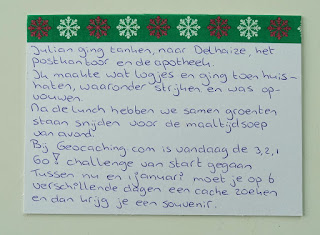 Julian ging tanken, naar Delhaize, het
postkantoor en de apotheek.
Ik maakte wat logjes en ging toen huis-
haten, waaronder strijken en was op-
vouwen.
Na de lunch hebben we samen groenten
staan snijden voor de maaltijdsoep
van avond.
Bij Geocaching.com is vandaag de 3,2,1
Go! challenge van start gegaan
Tussen nu en 1 januari moet je op 6
verschillende dagen een cache zoeken
en dan krijg je een souvenir.